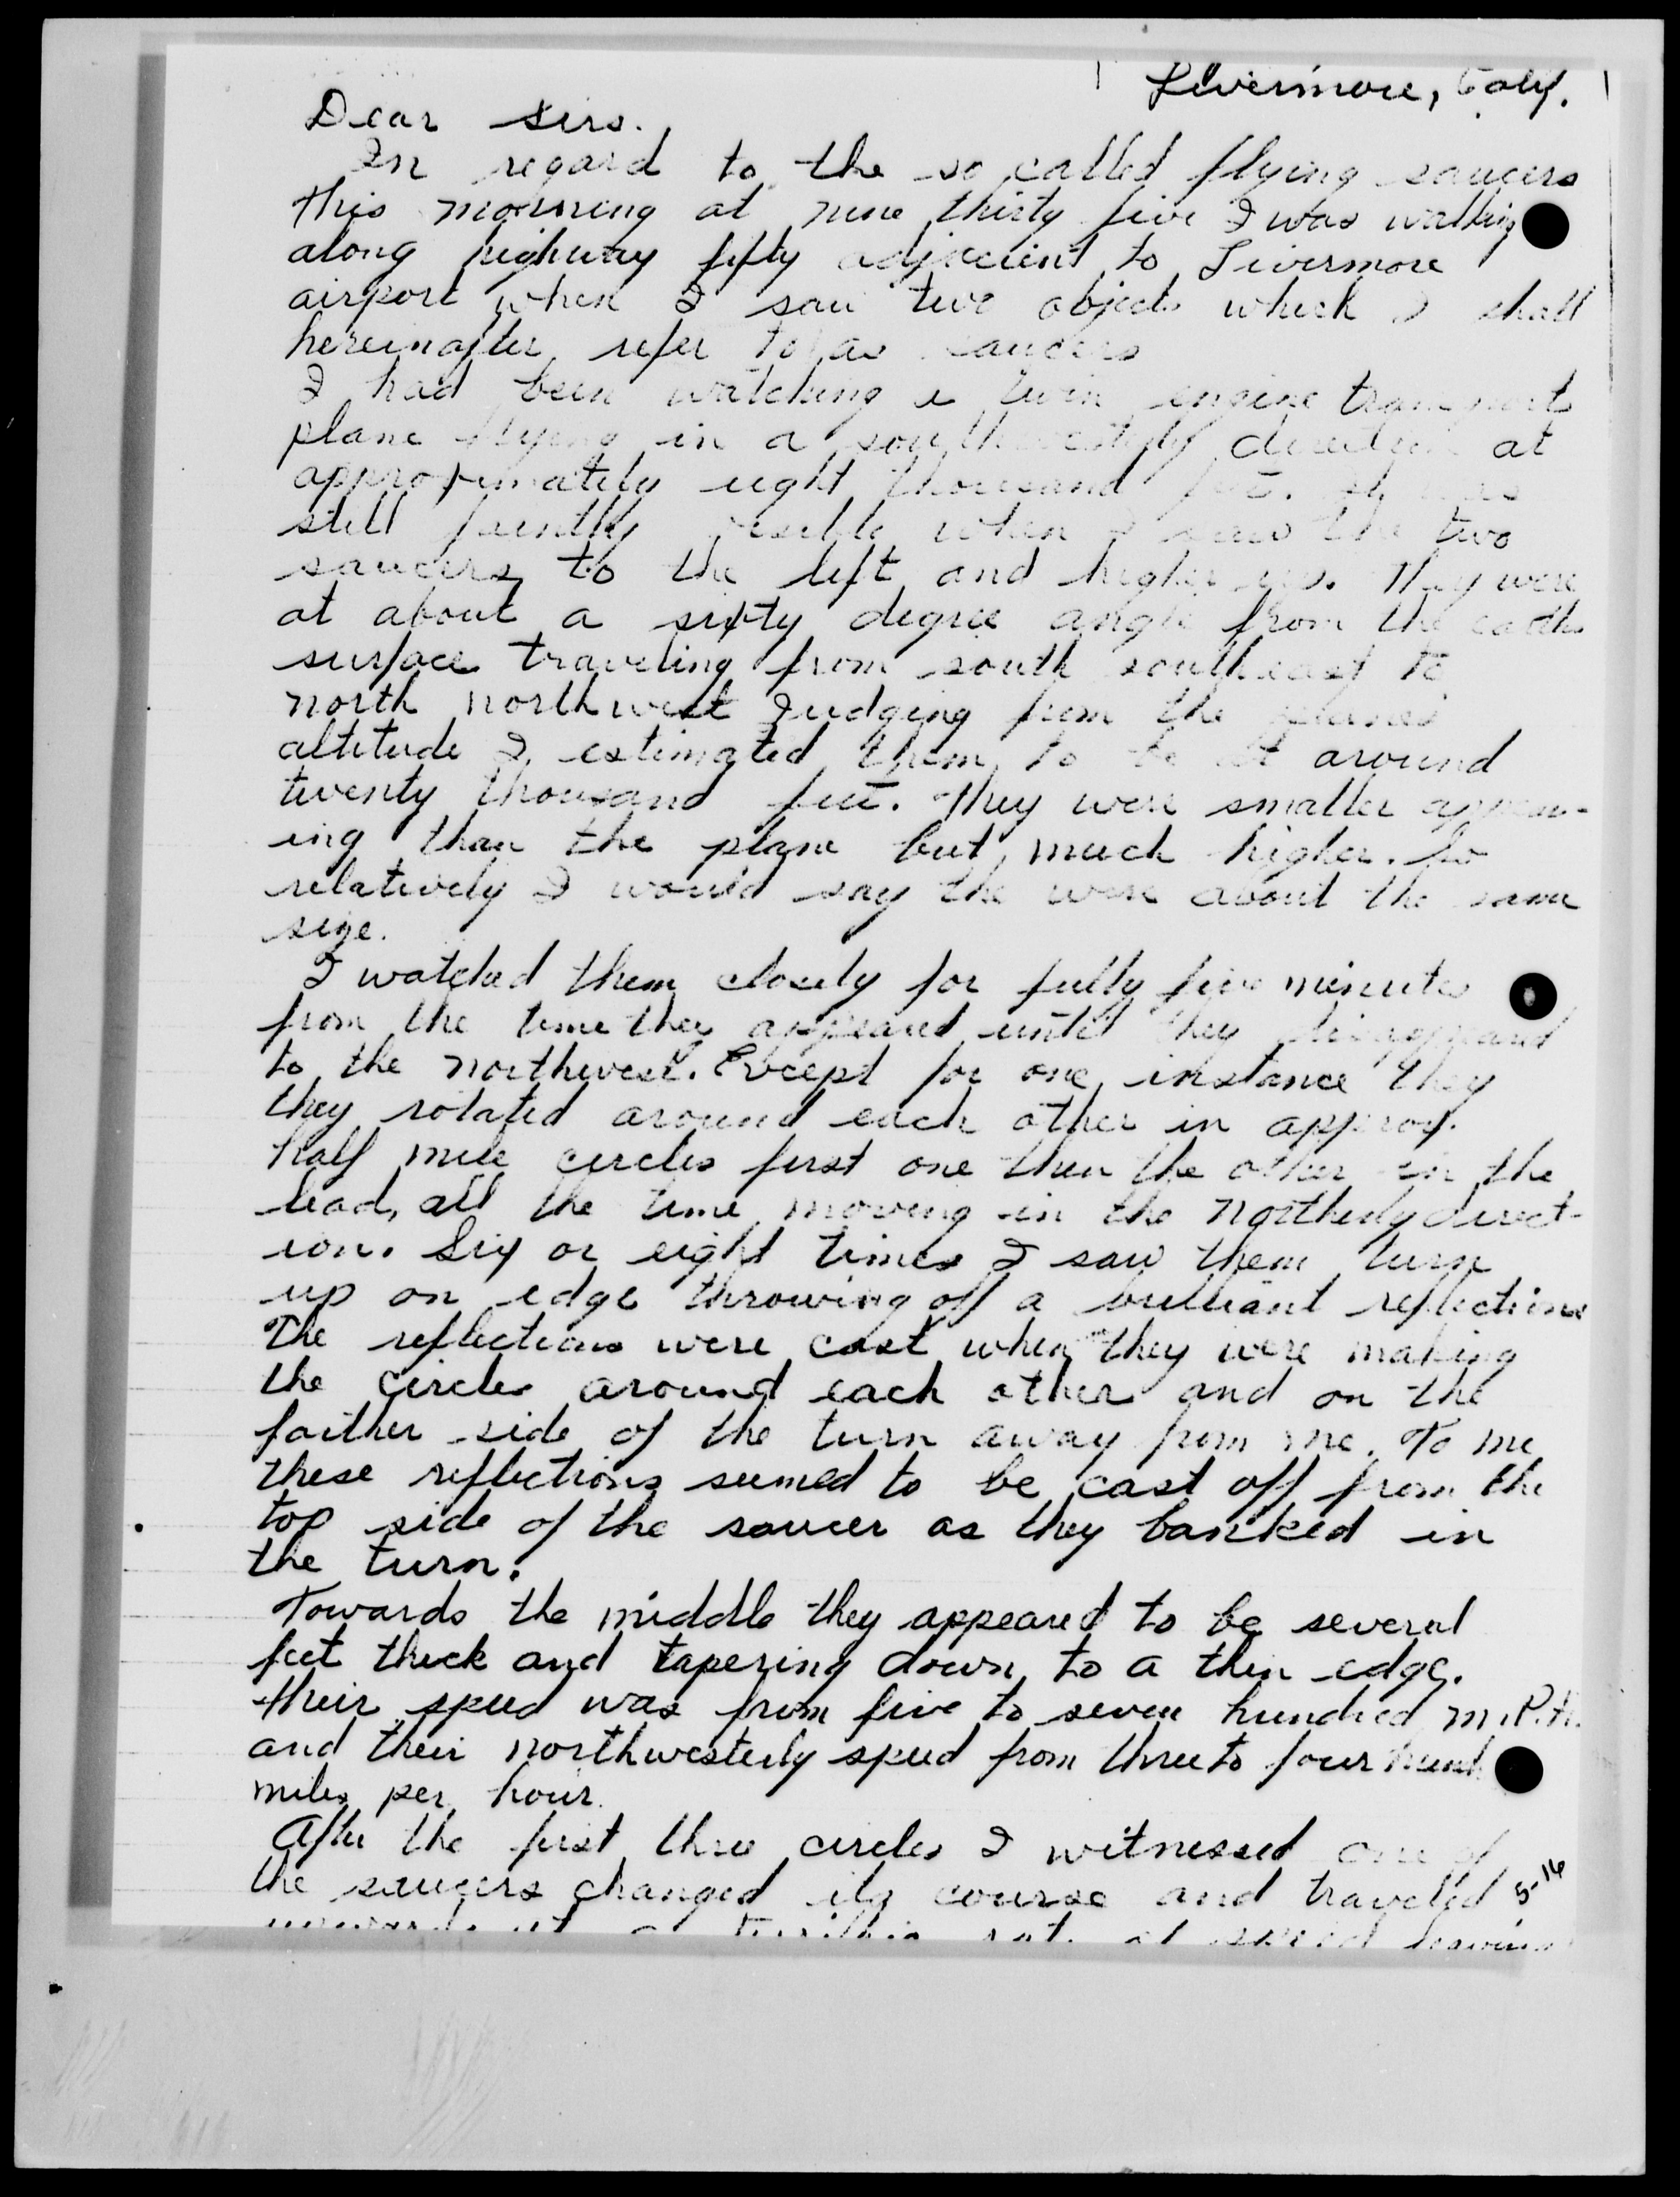 Livermore, Calif.
Dear Sirs.
In regard to the so called flying saucers
this morning at nine thirty five I was walking
along highway fifty adjacient to Livermore
airport when I saw two objects which I shall
hereinafter refer to as saucers
I had been watching a twin engine transport
plane flying in a southwesterly direction at
approximately eight thousand feet. It was
still faintly visible when I saw the two
saucers to the left and higher up. They were
at about a sixty degree angle from the earths
surface traveling from south southeast to
north northwest Judging from the planes
altitude I estimated them to be at around
twenty thousand feet. They were smaller appear-
ing than the plane but much higher. So
relatively I would say the were about the same
size.
I watched them closely for fully five minutes
from the time they appeared until they disappeared
to the northwest. Except for one instance they
they rotated around each other in approx.
half mile circles first one then the other in the
lead, all the time moving in the northerly direct-
ion. Six or eight times I saw them turn
up on edge throwing off a brilliant reflections
The reflections were cast when they were making
the circles around each other and on the
farther side of the turn away from me. To me
these reflections seemed to be cast off from the
top side of the saucer as they banked in
the turn.
Towards the middle they appeared to be several
feet thick and tapering down to a thin edge.
their speed was from five to seven hundred M.P.H.
and their northwesterly speed from three to four hund
miles per hour.
After the first three circles I witnessed one of
the saucers changed its course and traveled
upward at a terrific rate of speed leaving
5-16